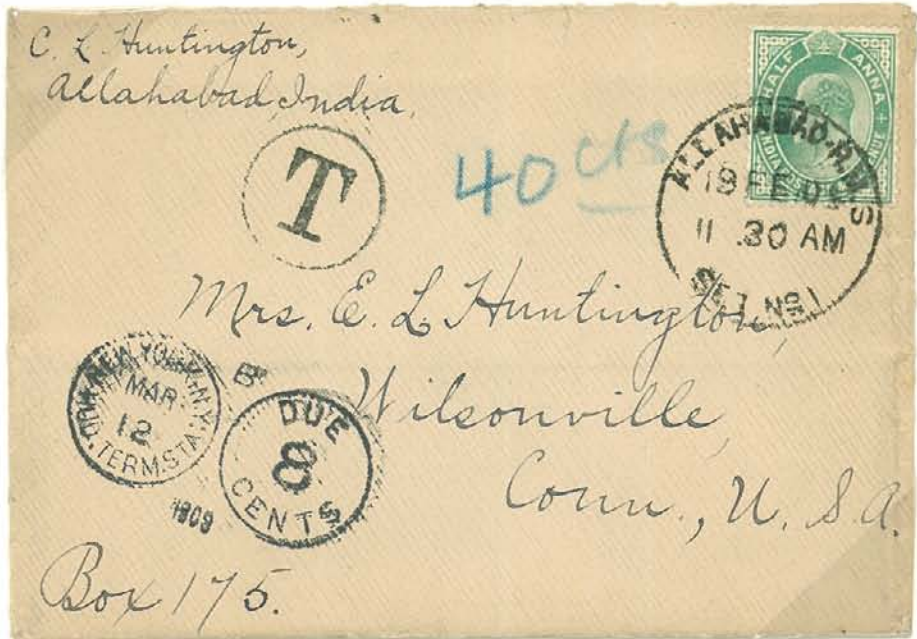 C. L. Huntington,
Allahabad, India,
T
40 cts
HALF ANNA
ALLAHABAD.R.M.S
19 FE 09
11 .30 AM
SET. No. 1
Mrs. E. L. Huntington,
Wilsonville,
Conn., U. S. A.
NEW YORK, N.Y.
MAR
12
TERM. STA.
1909
B
DUE
8
CENTS
Box 175.